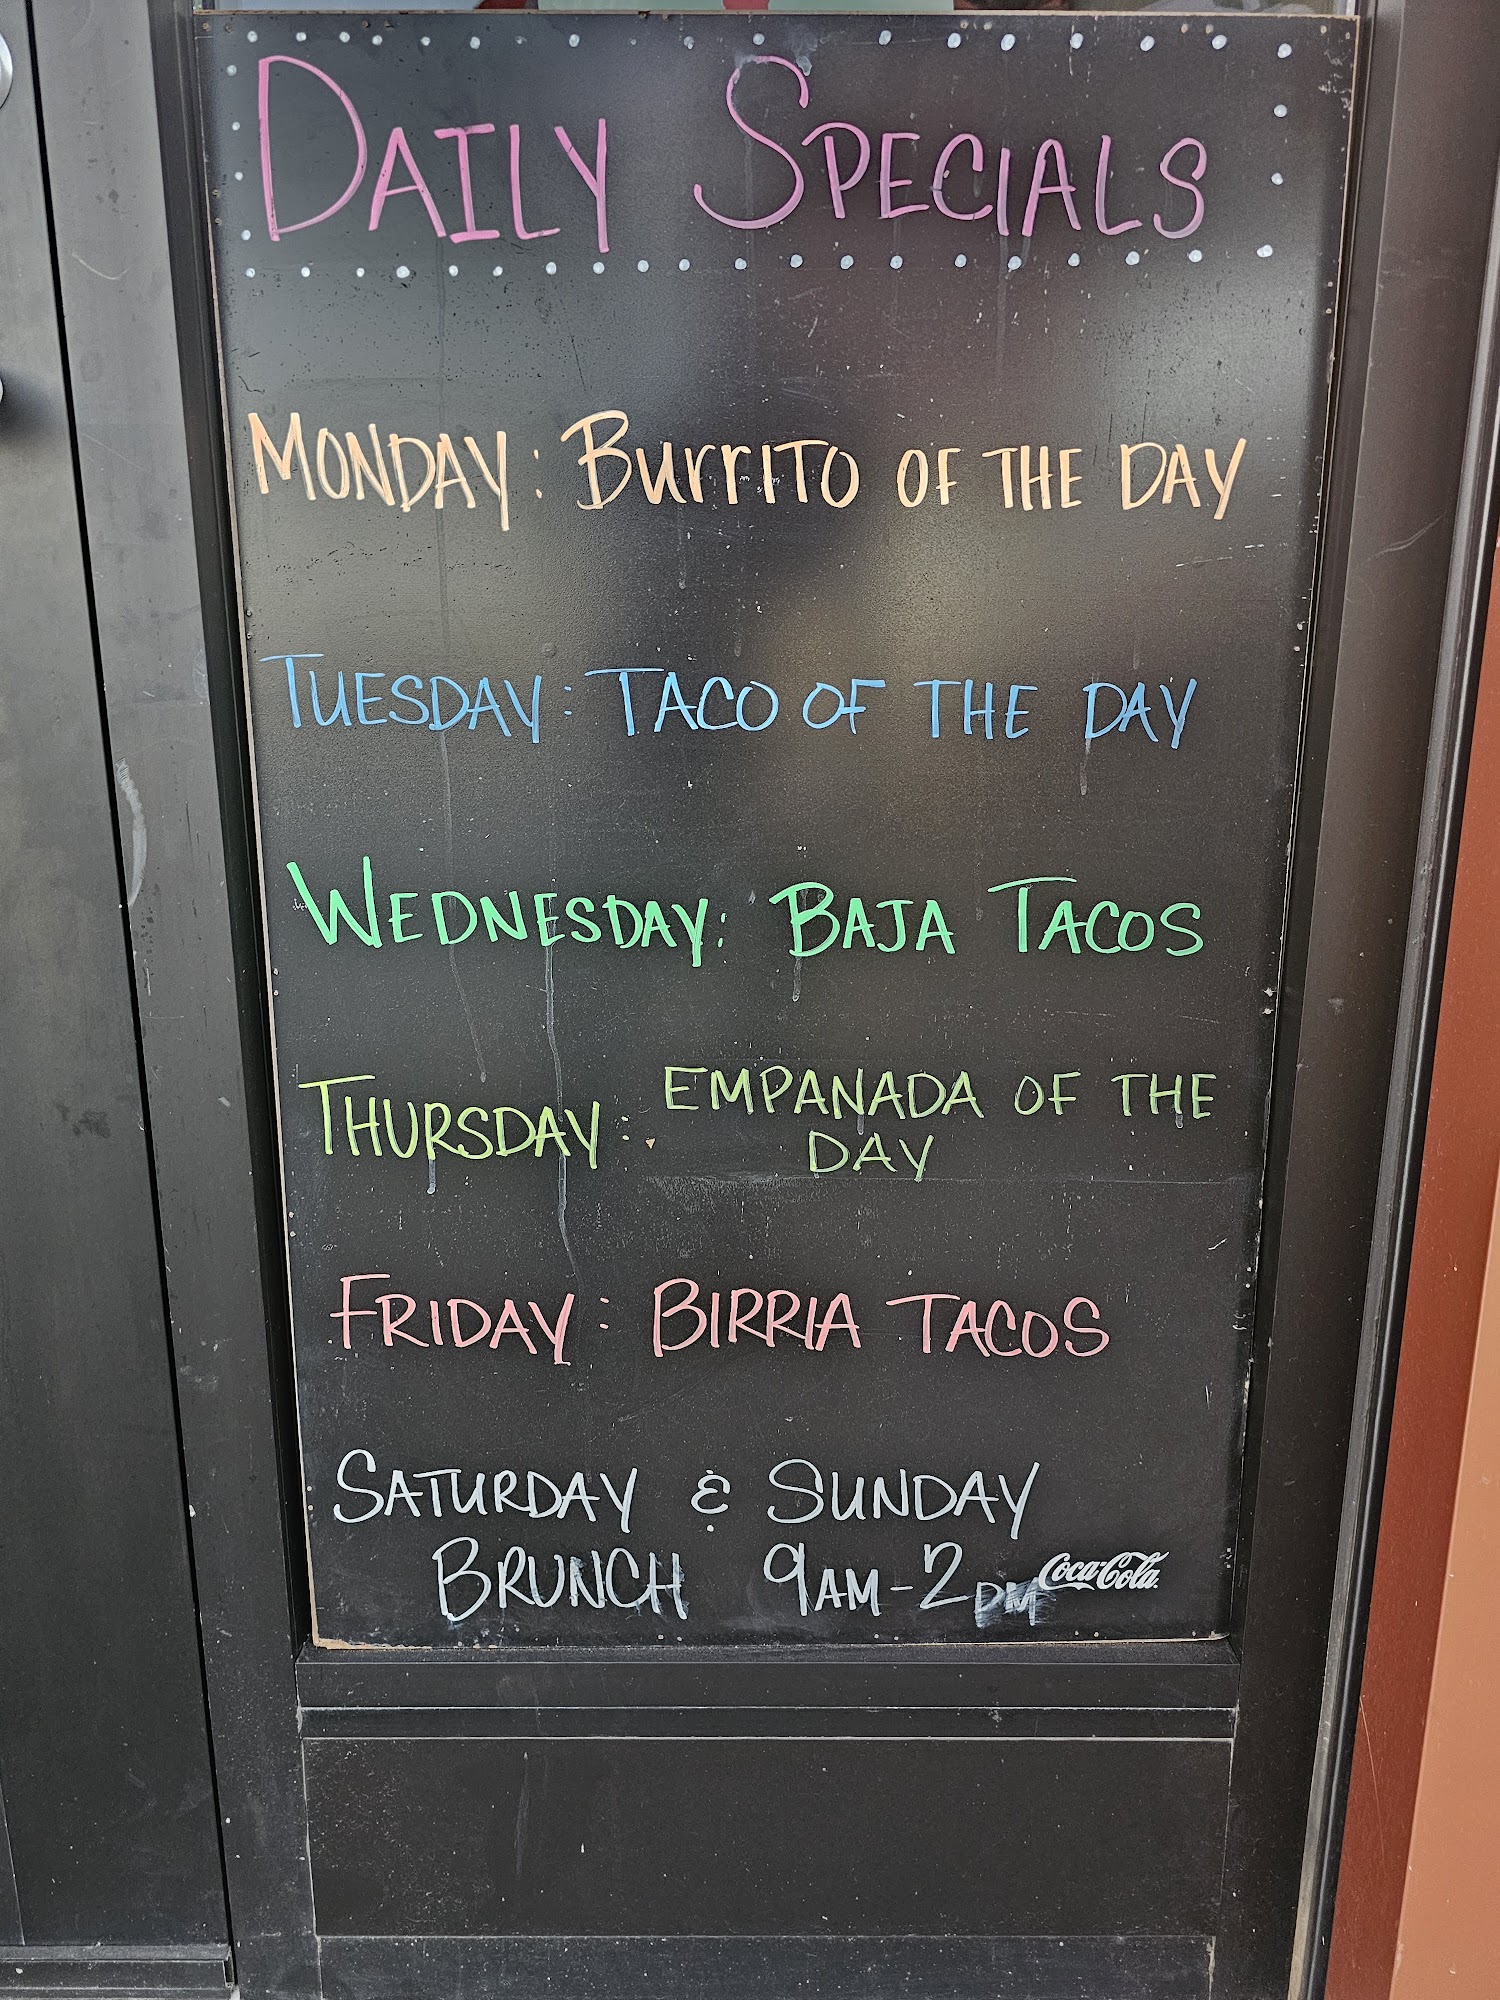 DAILY SPECIALS
MONDAY: BurrITO OF THE DAY
TUESDAY: TACO OF THE DAY
WEDNESDAY: BAJA TACOS
THURSDAY: EMPANADA OF THE
DAY
FRIDAY: BIRRIA TACOS
SATURDAY & SUNDAY
BRUNCH 9AM-2PM Coca-Cola